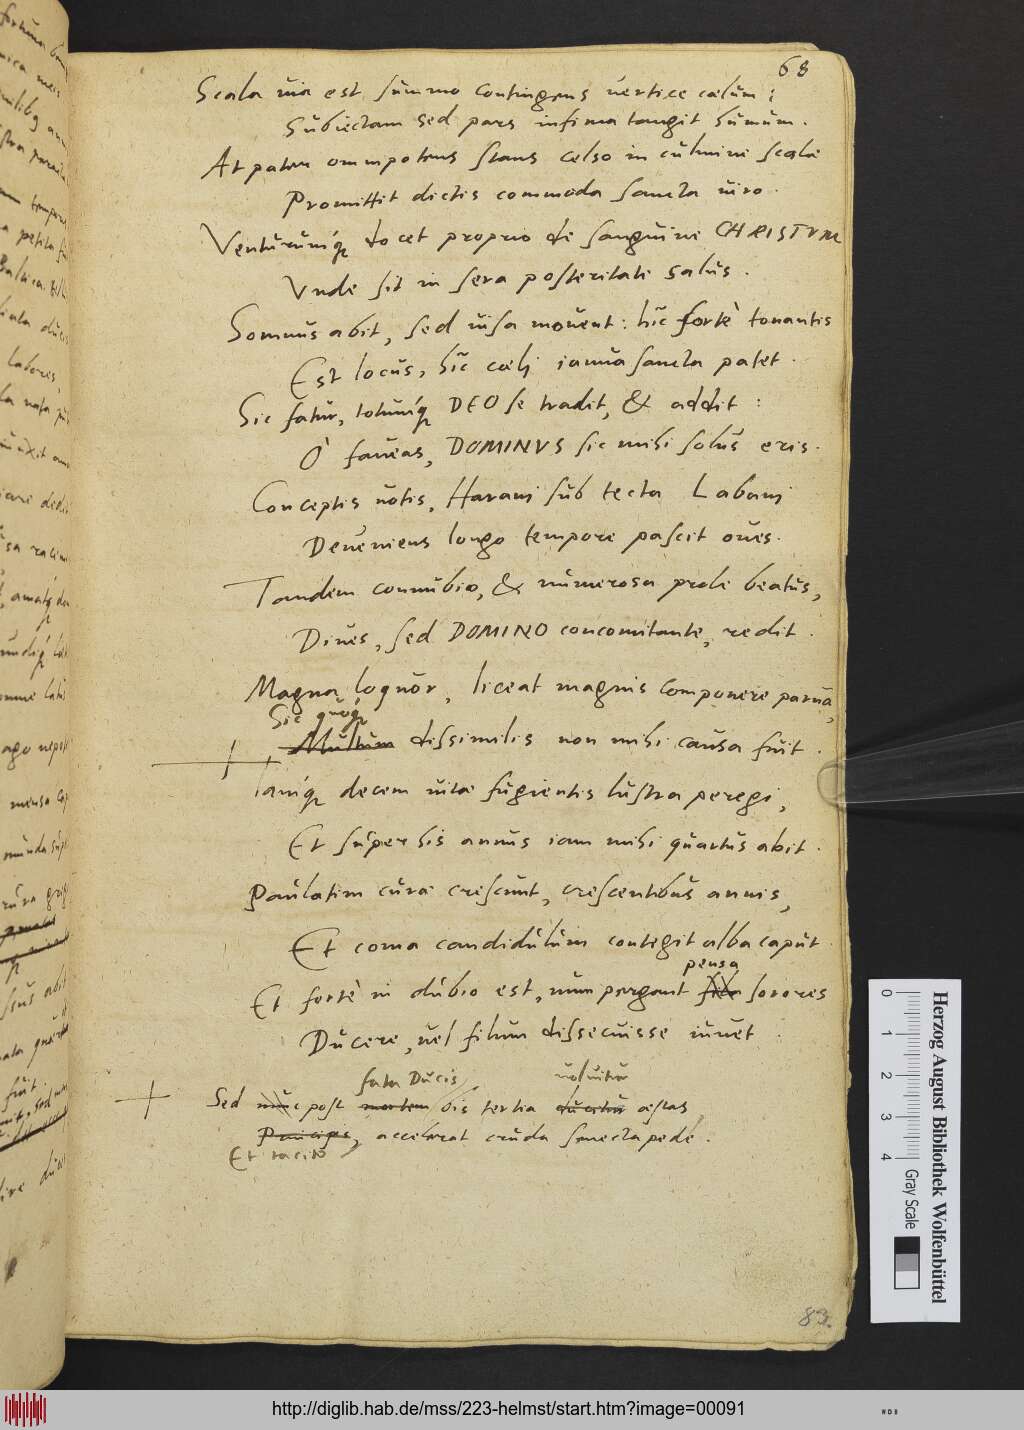 68
Scala uia est summo contingens uertice cœlum:
Subiectam sed pars infima tangit humum.
At pater omnipotens stans celso in culmine scalæ
Promittit dictis commoda sancta uiro.
Venturumq́ue docet proprio de sanguine CHRISTVM
Vnde sit in sera posteritate salus.
Somnus abit, sed uisa mouent: hîc fortè tonantis
Est locus, hîc cœli ianua sancta patet.
Sic fatur, totumq́ue DEO se tradit, & addit:
Ô faueas, DOMINVS sic mihi solus eris.
Conceptis uotis, Harani sub tecta Labani
Deueniens longo tempore pascit oues.
Tandem connubio, & numerosa prole beatus,
Diues, sed DOMINO concomitante, redit.
Magna loquor, liceat magnis componere parua,
Sic quoque
Multum dissimilis non mihi causa fuit.
Iamq́ue decem uitæ fugientis lustra peregi,
Et super his annus iam mihi quartus abit.
Paulatim curæ crescunt, crescentibus annis,
Et coma candidulum contegit alba caput.
pensa
Et fortè in dubio est, num pergant fila sorores
Ducere, uel filum dissecuisse iuuet.
fata Ducis uoluitur
Sed nunc post mortem bis tertia ducitur æstas
Principis, accelerat cruda senecta pede.
Et tacito
83.
Herzog August Bibliothek Wolfenbüttel
Gray Scale
0 1 2 3 4
http://diglib.hab.de/mss/223-helmst/start.htm?image=00091